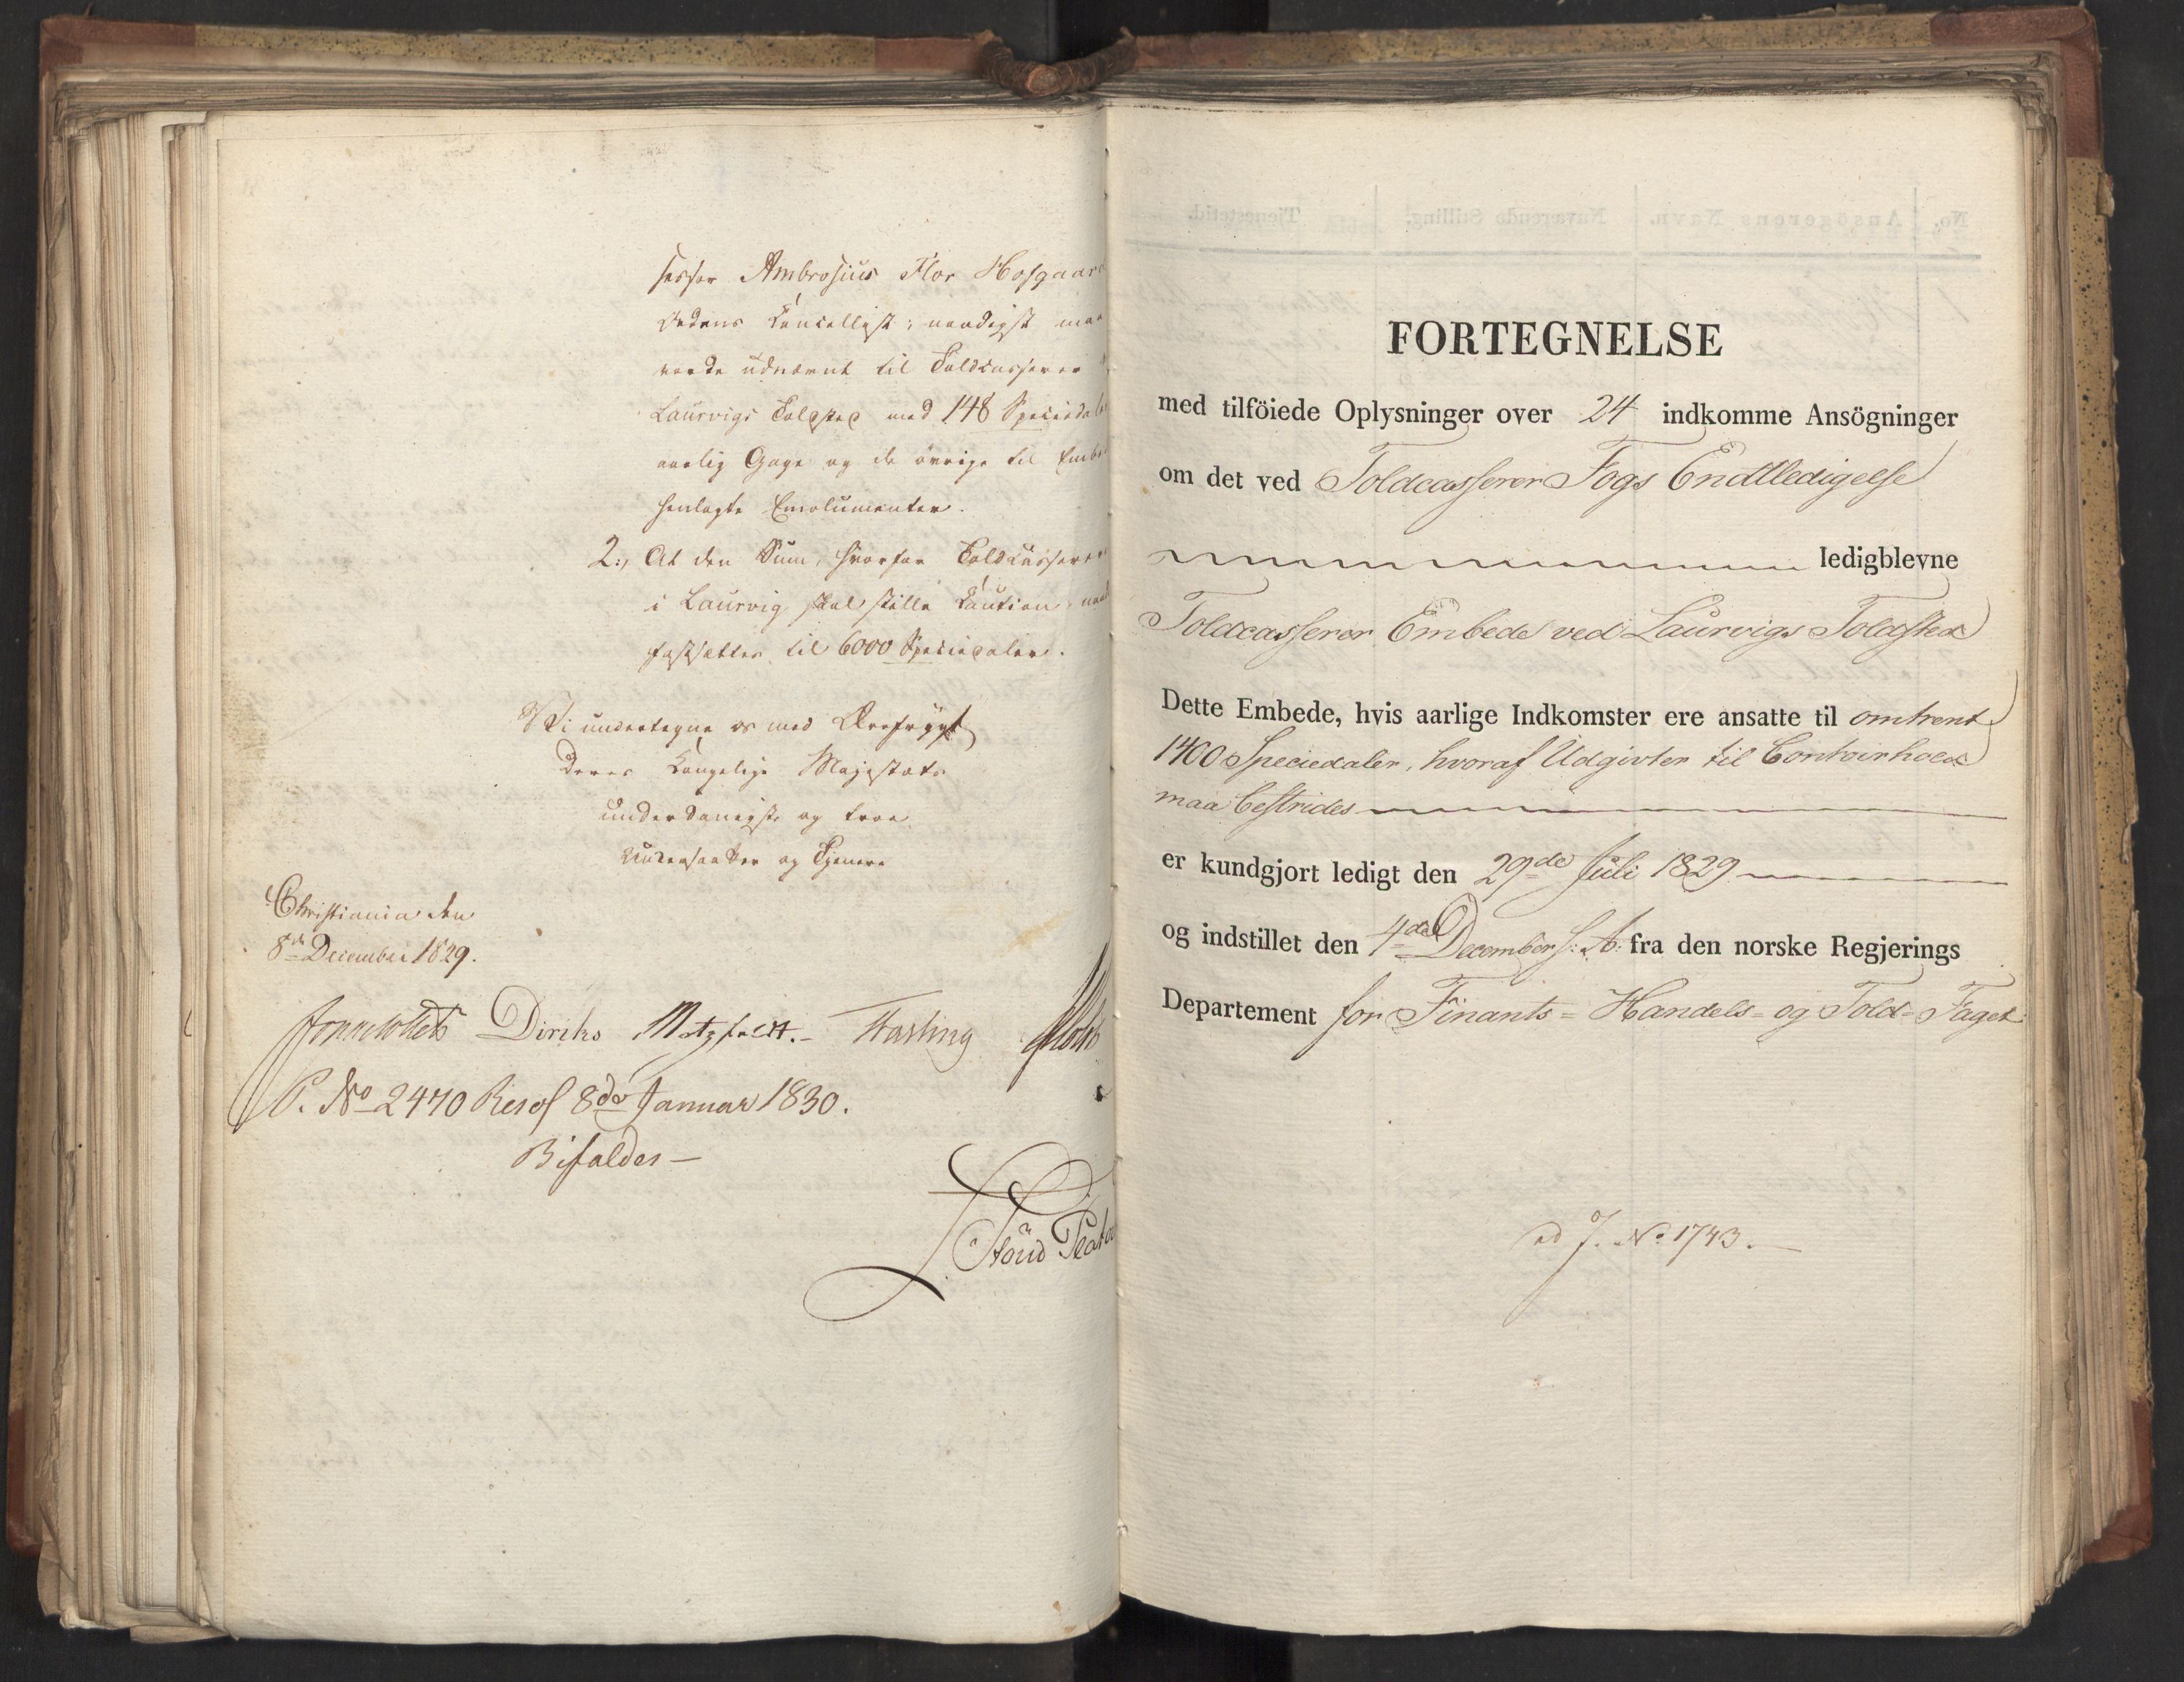 sesser Ambrosius Flor Hofgaard
Vedens Cancellist, naadigst maa
vorde udnævnt til Toldcasserer
Laurvigs Toldsted med 148 Speciedaler
aarlig Gage og de øvrige til Embe
henlagte Emolumenter.
2., At den Sum, hvorfor Toldcassereren
i Laurvig skal stille Caution, naad
fastsættes til 6000 Speciedaler.
Vi undertegne os med Ærefrygt
Deres Kongelige Majestæts
underdanigste og troe
Undersaatter og Tjenere
Christiania den
8de December 1829.
Diriks Motzfeldt. Fasting
P. No 2470 Resol 8de Januar 1830.
Bifaldes —
FORTEGNELSE
med tilföiede Oplysninger over 24 indkomme Ansögninger
om det ved Toldcasserer Fogs Endtledigelse
ledigblevne
Toldcasserer Embede ved Laurvigs Toldsted
Dette Embede, hvis aarlige Indkomster ere ansatte til omtrent
1400 Speciedaler, hvoraf Udgivter til Contoirhold
maa bestrides
er kundgjort ledigt den 29de Juli 1829
og indstillet den 4de December s: A: fra den norske Regjerings
Departement for Finants= Handels= og Told= Faget
ad J. No 1743. —